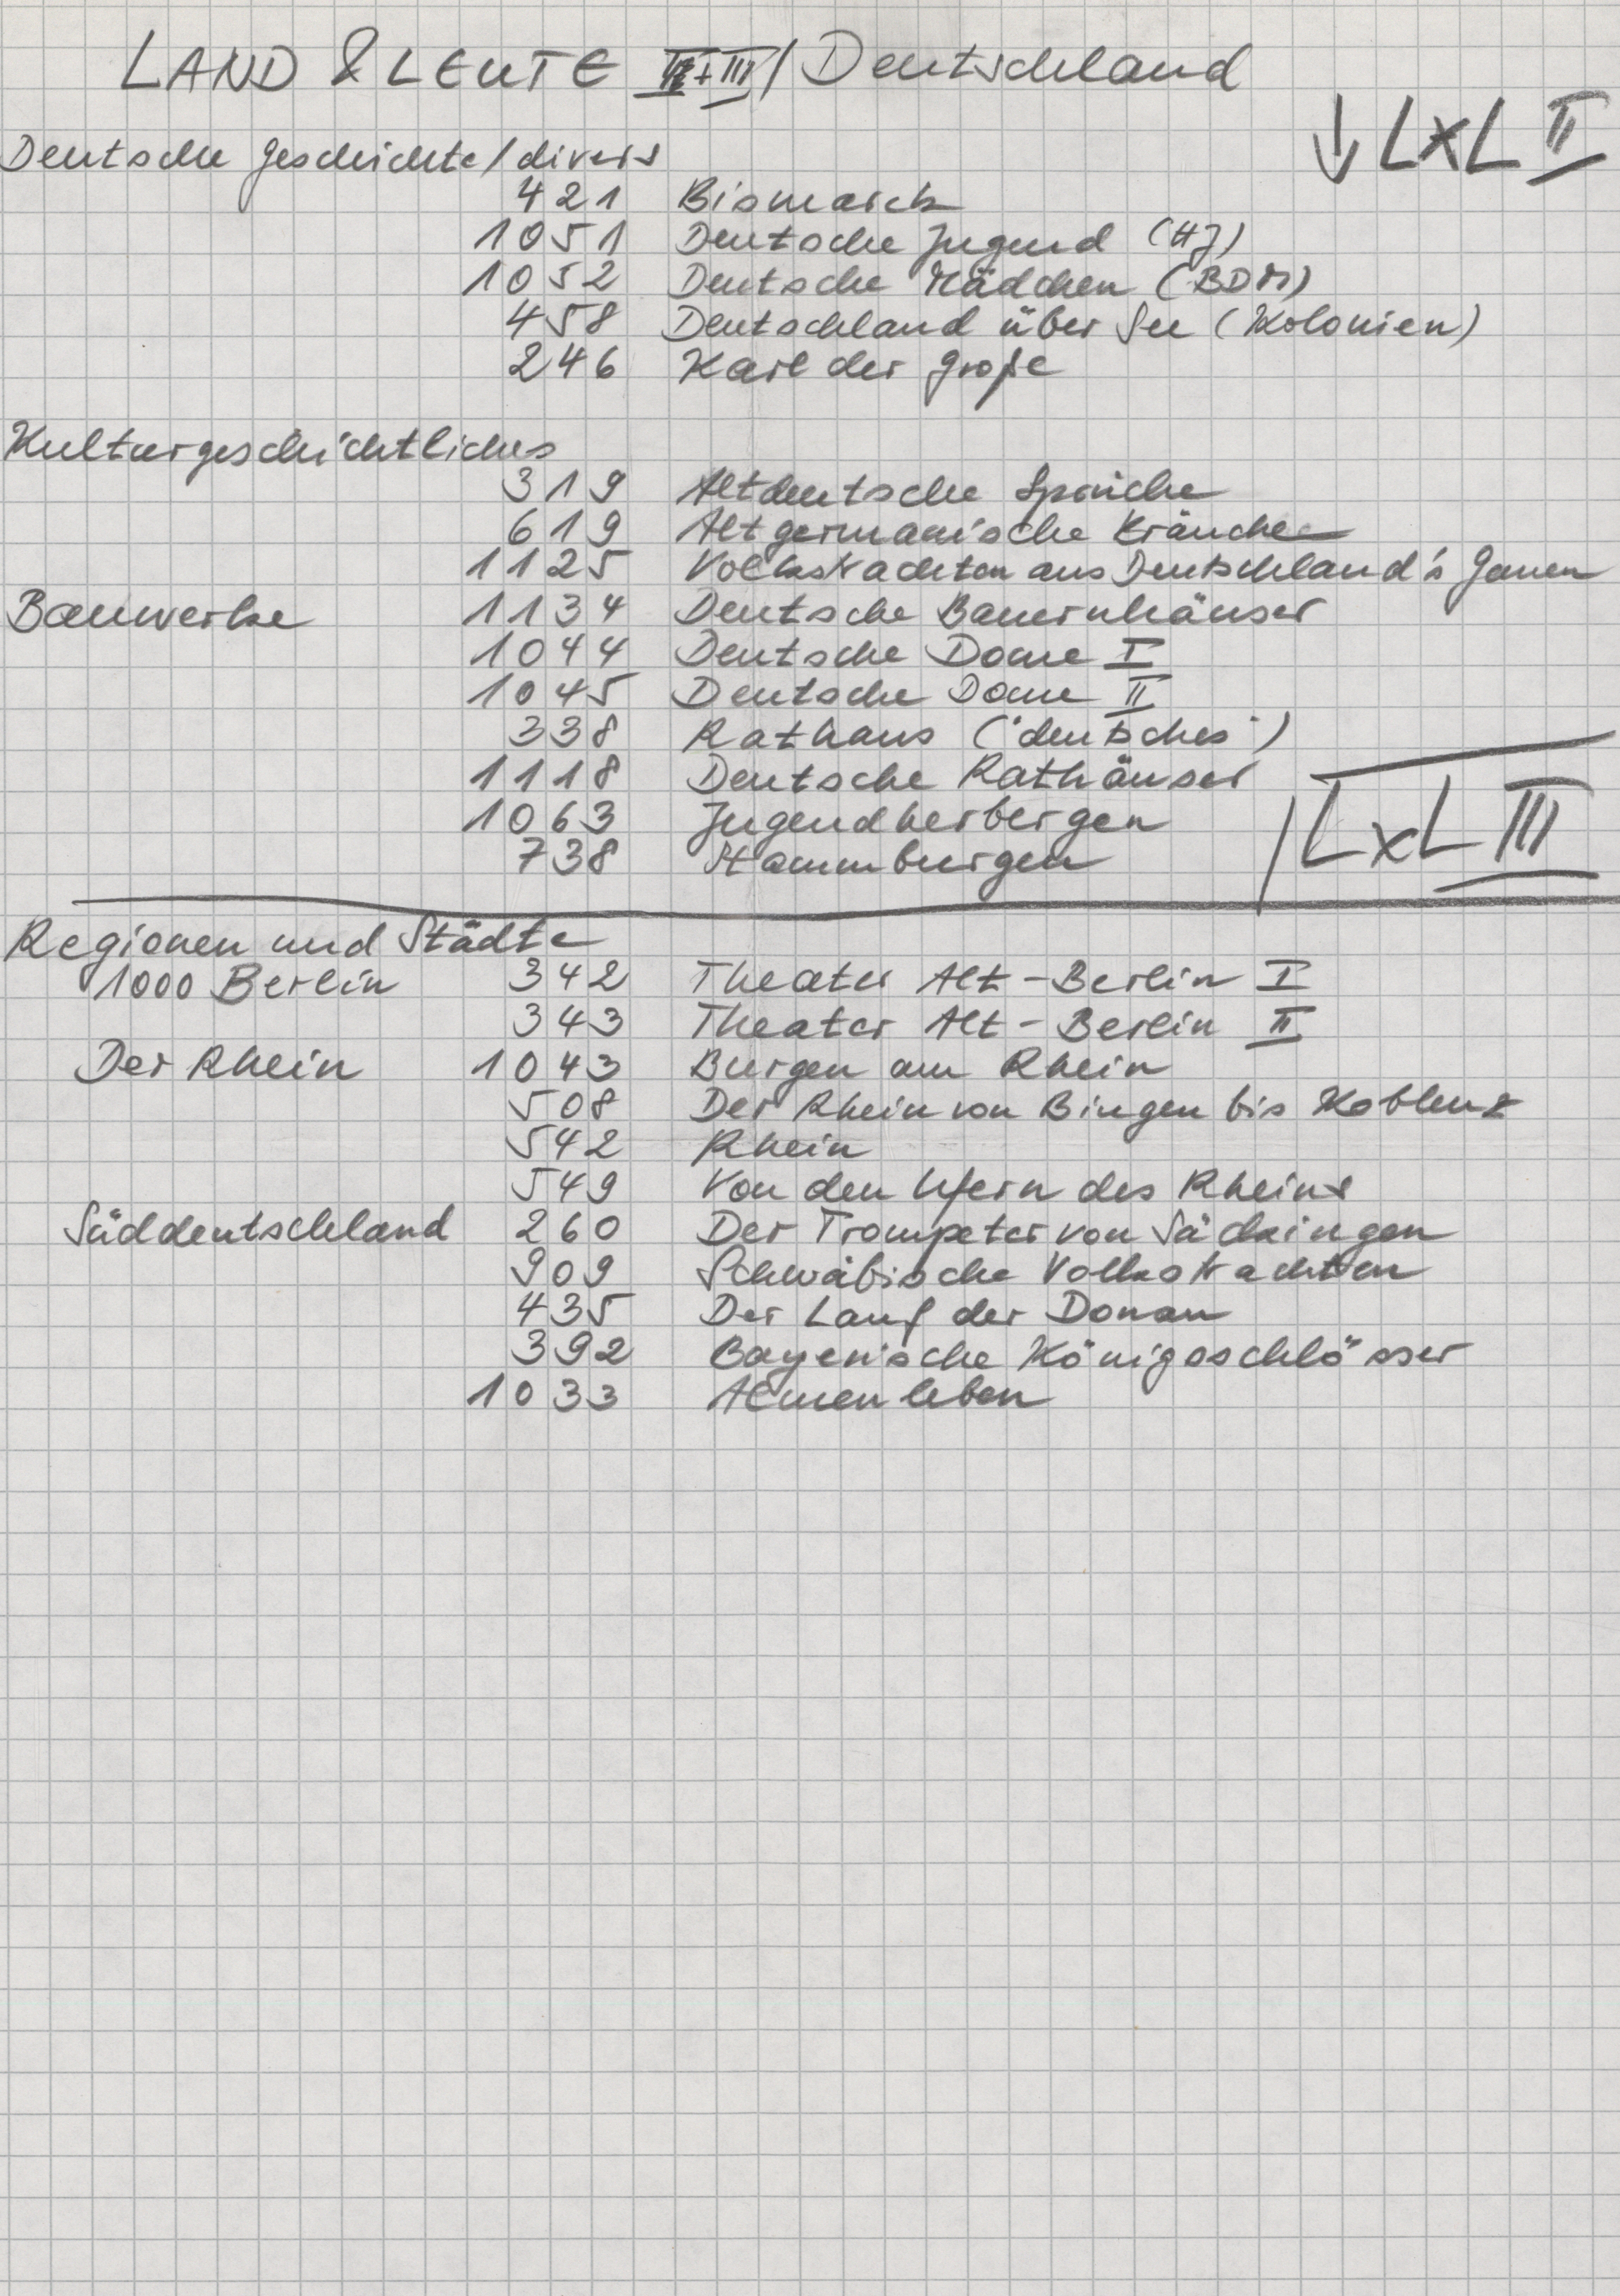 LAND & LEUTE II+III / Deutschland
↓ LxL II
Deutsche Geschichte / divers
421 Bismarck
1051 Deutsche Jugend (HJ)
1052 Deutsche Mädchen (BDM)
458 Deutschland über See (Kolonien)
246 Karl der Große
Kulturgeschichtliches
319 Altdeutsche Sprüche
619 Altgermanische Bräuche
1125 Volkstrachten aus Deutschland's Gauen
Bauwerke 1134 Deutsche Bauernhäuser
1044 Deutsche Dome I
1045 Deutsche Dome II
338 Rathaus ("deutsches")
1118 Deutsche Rathäuser
1063 Jugendherbergen
738 Stammburgen
LxL III
Regionen und Städte
1000 Berlin 342 Theater Alt-Berlin I
343 Theater Alt-Berlin II
Der Rhein 1043 Burgen am Rhein
508 Der Rhein von Bingen bis Koblenz
542 Rhein
549 Von den Ufern des Rheins
Süddeutschland 260 Der Trompeter von Säckingen
909 Schwäbische Volkstrachten
435 Der Lauf der Donau
392 Bayerische Königsschlösser
1033 Almenleben